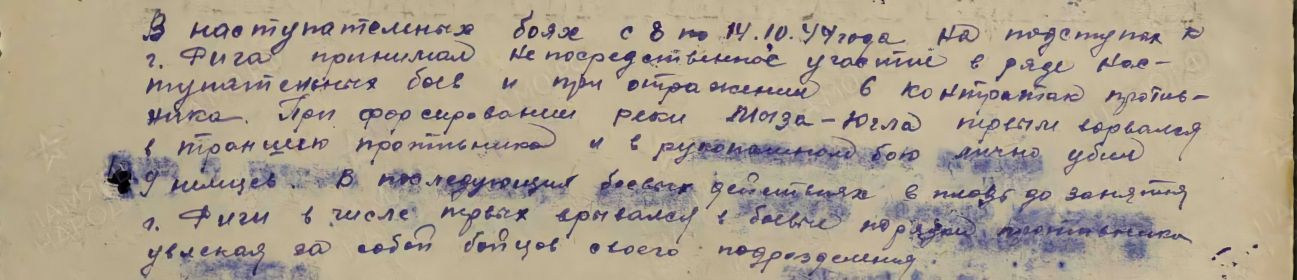 В наступательных боях с 8 по 14.10.44 года на подступах к
г. Рига принимал непосредственное участие в ряде нас-
тупательных боев и при отражении 6 контратак против-
ника. При форсировании реки Мыза-Югла первым ворвался
в траншею противника и в рукопашном бою лично убил
9 немцев. В последующих боевых действиях в плоть до занятия
г. Риги в числе первых врывался в боевые порядки противника
увлекая за собой бойцов своего подразделения.